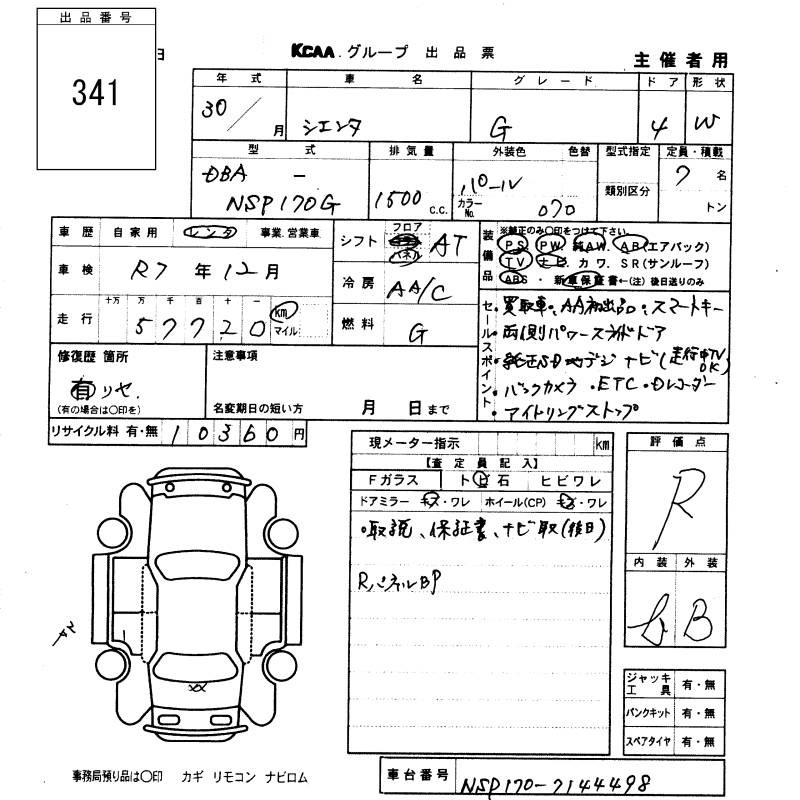 出品番号
341
日
KCAA グループ 出品票
主催者用
年式 車名 グレード ドア 形状
30/月 シエンタ G 4 W
型式 排気量 外装色 色替 型式指定 定員・積載
DBA - 1500 c.c. パール 7名
NSP170G カラーNo. 070 類別区分 トン
車歴 自家用 レンタ 事業.営業車
車検 R7年12月
走行 十万 万 千 百 十 一
57720 km マイル
シフト フロア コラム パネル AT
冷房 AA/C
燃料 G
装備品 ※純正のみ○印をつけて下さい
PS PW. 純AW. AB(エアバック)
TV ナビ・カワ.SR(サンルーフ)
ABS・新車保証書←(注)後日送りのみ
セールスポイント
・買取車・AA初出品・スマートキー
・両側パワースライドドア
・純正SD地デジナビ(走行中TVOK)
・バックカメラ・ETC・Dレコーダー
・アイドリングストップ
修復歴 箇所
有 リヤ.
(有の場合は○印を)
注意事項
名変期日の短い方 月 日まで
リサイクル料 有・無 10360円
現メーター指示 km
【査定員記入】
Fガラス トビ石 ヒビワレ
ドアミラー キズ・ワレ ホイール(CP) キズ・ワレ
・取説、保証書、ナビ取(後日)
RパネルBP
評価点
R
内装 外装
b B
A2
XX
ジャッキ 工具 有・無
パンクキット 有・無
スペアタイヤ 有・無
事務局預り品は○印 カギ リモコン ナビロム
車台番号 NSP170-7144498